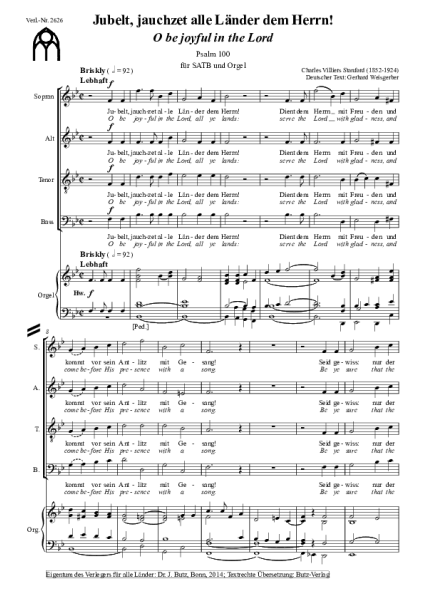 Verl.-Nr. 2626
Jubelt, jauchzet alle Länder dem Herrn!
O be joyful in the Lord
Psalm 100
für SATB und Orgel
Charles Villiers Stanford (1852-1924)
Deutscher Text: Gerhard Weisgerber
Briskly (♩=92)
Lebhaft
f
Sopran
Ju - belt, jauch-zet al - le Län - der dem Herrn! Dient dem Herrn mit Freu - den und
O be joy - ful in the Lord, all ye lands: serve the Lord with glad - ness, and
f
Alt
Ju - belt, jauch-zet al - le Län - der dem Herrn! Dient dem Herrn mit Freu - den und
O be joy - ful in the Lord, all ye lands: serve the Lord with glad - ness, and
f
Tenor
Ju - belt, jauch-zet al - le Län - der dem Herrn! Dient dem Herrn mit Freu - den und
O be joy - ful in the Lord, all ye lands: serve the Lord with glad - ness, and
f
Bass
Ju - belt, jauch-zet al - le Län - der dem Herrn! Dient dem Herrn mit Freu - den und
O be joy - ful in the Lord, all ye lands: serve the Lord with glad - ness, and
Briskly (♩=92)
Lebhaft
Hw. f
Orgel
[Ped.]
8
S.
kommt vor sein Ant - litz mit Ge - sang! Seid ge - wiss: nur der
come be-fore His pre - sence with a song. Be ye sure that the
A.
kommt vor sein Ant - litz mit Ge - sang! Seid ge - wiss: nur der
come be-fore His pre - sence with a song. Be ye sure that the
T.
kommt vor sein Ant - litz mit Ge - sang! Seid ge - wiss: nur der
come be-fore His pre - sence with a song. Be ye sure that the
B.
kommt vor sein Ant - litz mit Ge - sang! Seid ge - wiss: nur der
come be-fore His pre - sence with a song. Be ye sure that the
Org.
Eigentum des Verlegers für alle Länder: Dr. J. Butz, Bonn, 2014; Textrechte Übersetzung: Butz-Verlag